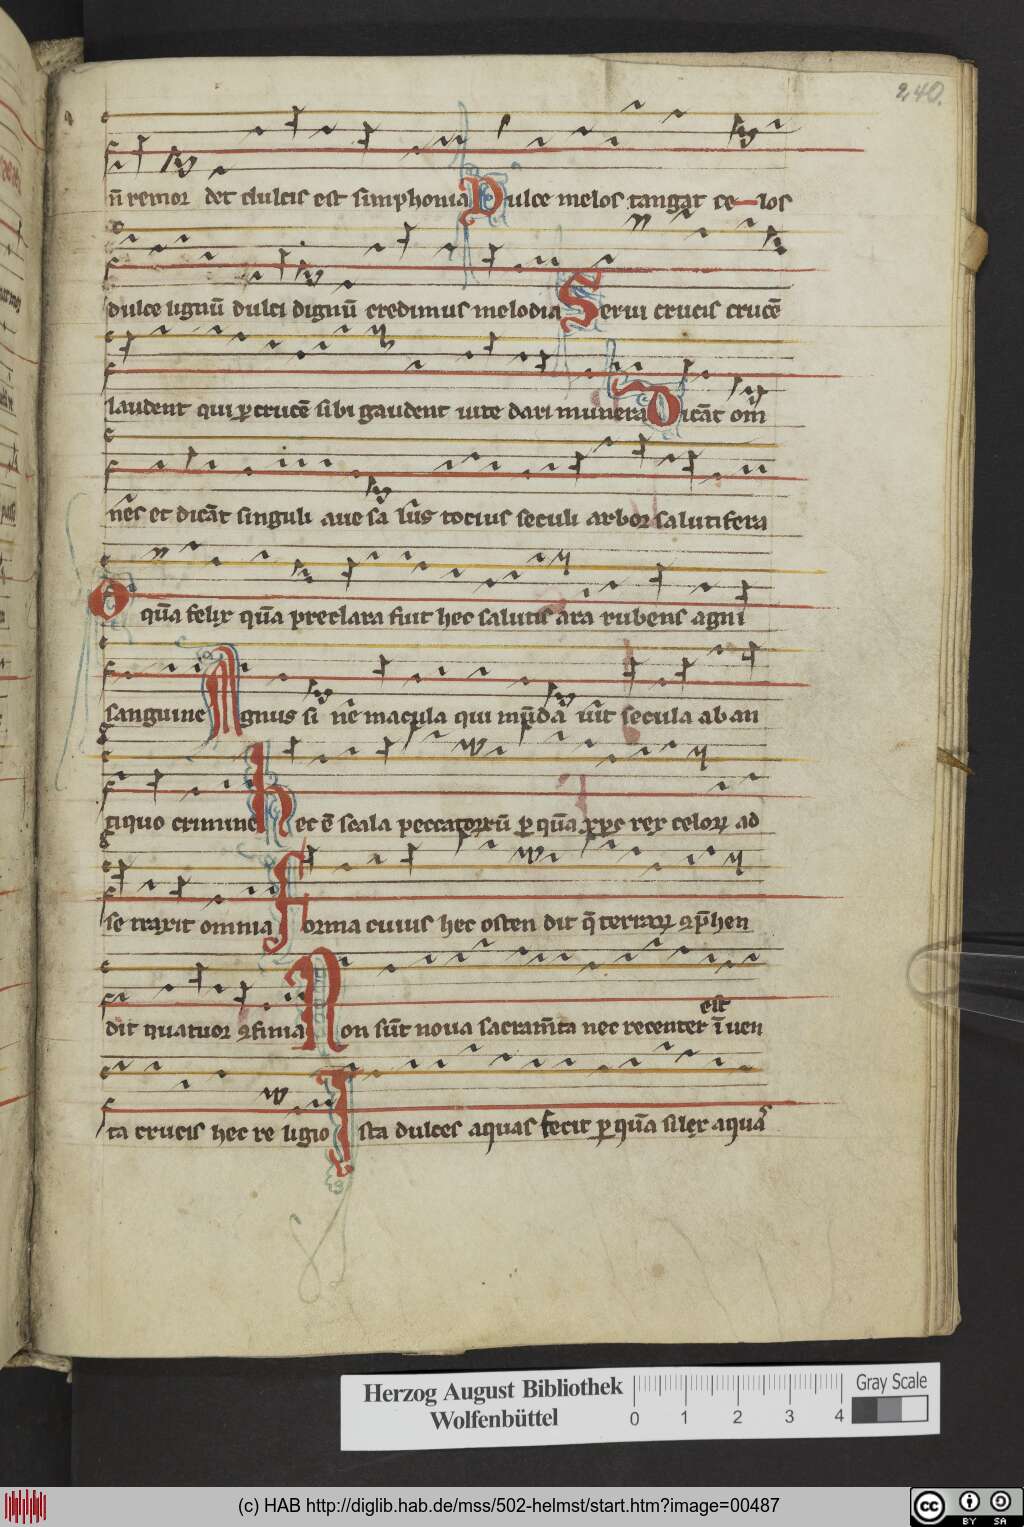 240.
n̄ remor det dulcis est simphonia Dulce melos tangat ce—los
dulce lignū dulci dignū credimus melodia Serui crucis crucē
laudent qui ꝑ crucē sibi gaudent uite dari munera Dicāt om̄
nes et dicāt singuli aue sa lus tocius seculi arbor salutifera
O quā felix quā preclara fuit hec salutis ara rubens agni
sanguine Agnus si ne macula qui mūdauit secula ab an
tiquo crimine hec ē scala peccatorū ꝑ quā xp̄c rex celoꝝ ad
se traxit omnia forma cuius hec osten dit q̄ terraꝝ ꝯp̄hen
dit quatuor ꝯfinia Non sūt noua sacramēta nec recenter est
īuen
ta crucis hec re ligio Ista dulces aquas fecit ꝑ quā silex aquas
Herzog August Bibliothek
Wolfenbüttel
0 1 2 3 4
Gray Scale
(c) HAB http://diglib.hab.de/mss/502-helmst/start.htm?image=00487
cc BY SA